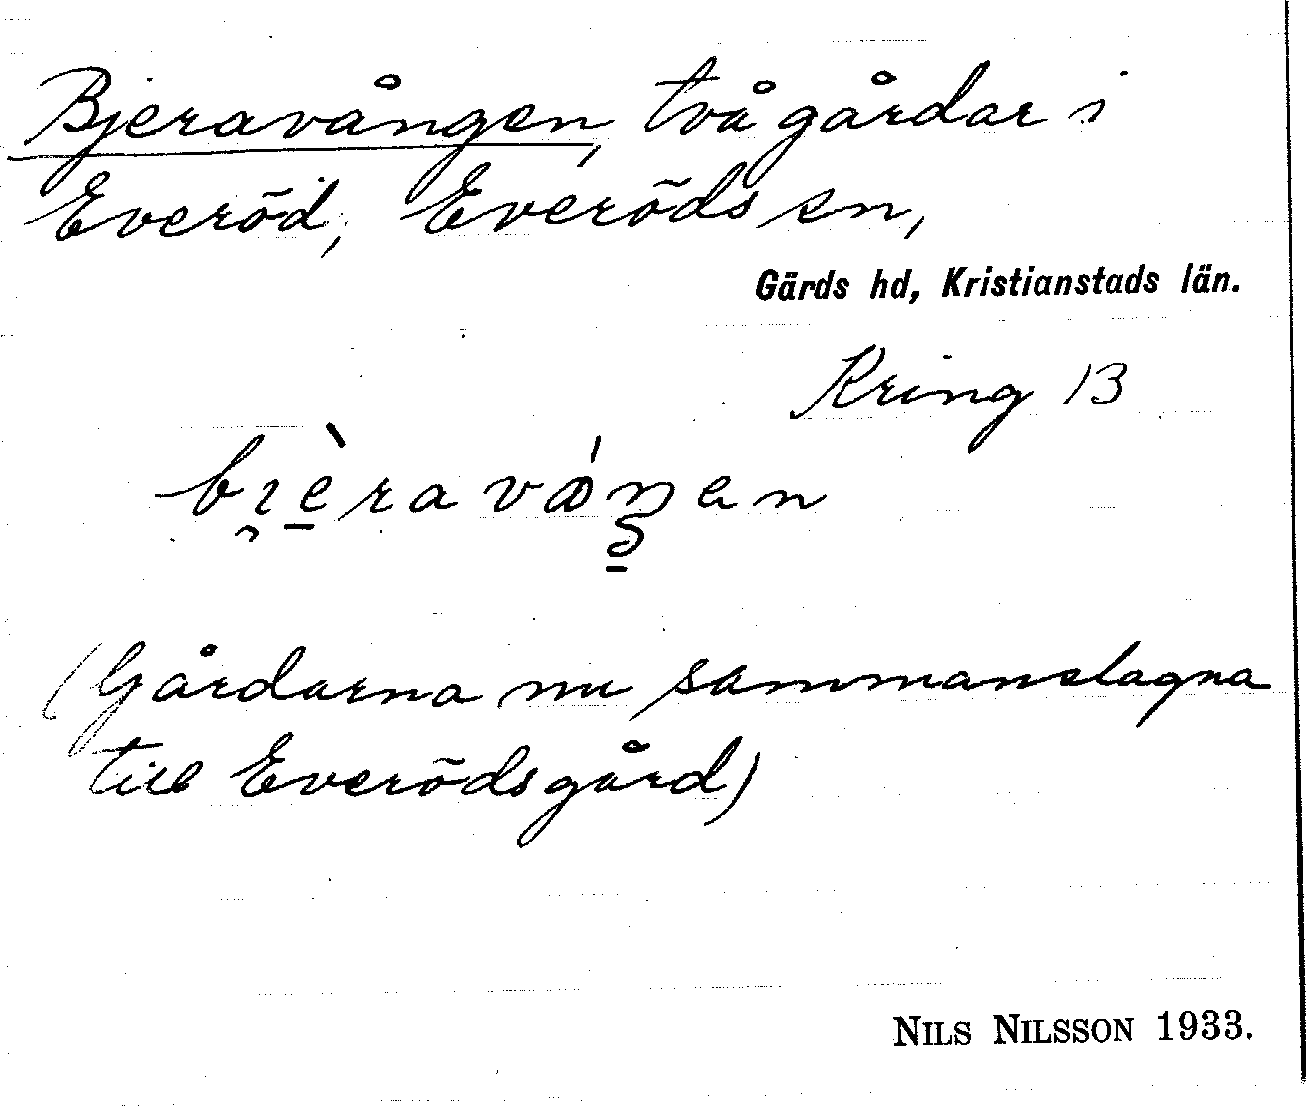 Bjeravången, två gårdar i
Everöd, Everöds sn,
Gärds hd, Kristianstads län.
Kring 13
bi̯è̱raváŋen
(Gårdarna nu sammanslagna
till Everödsgård)
NILS NILSSON 1933.